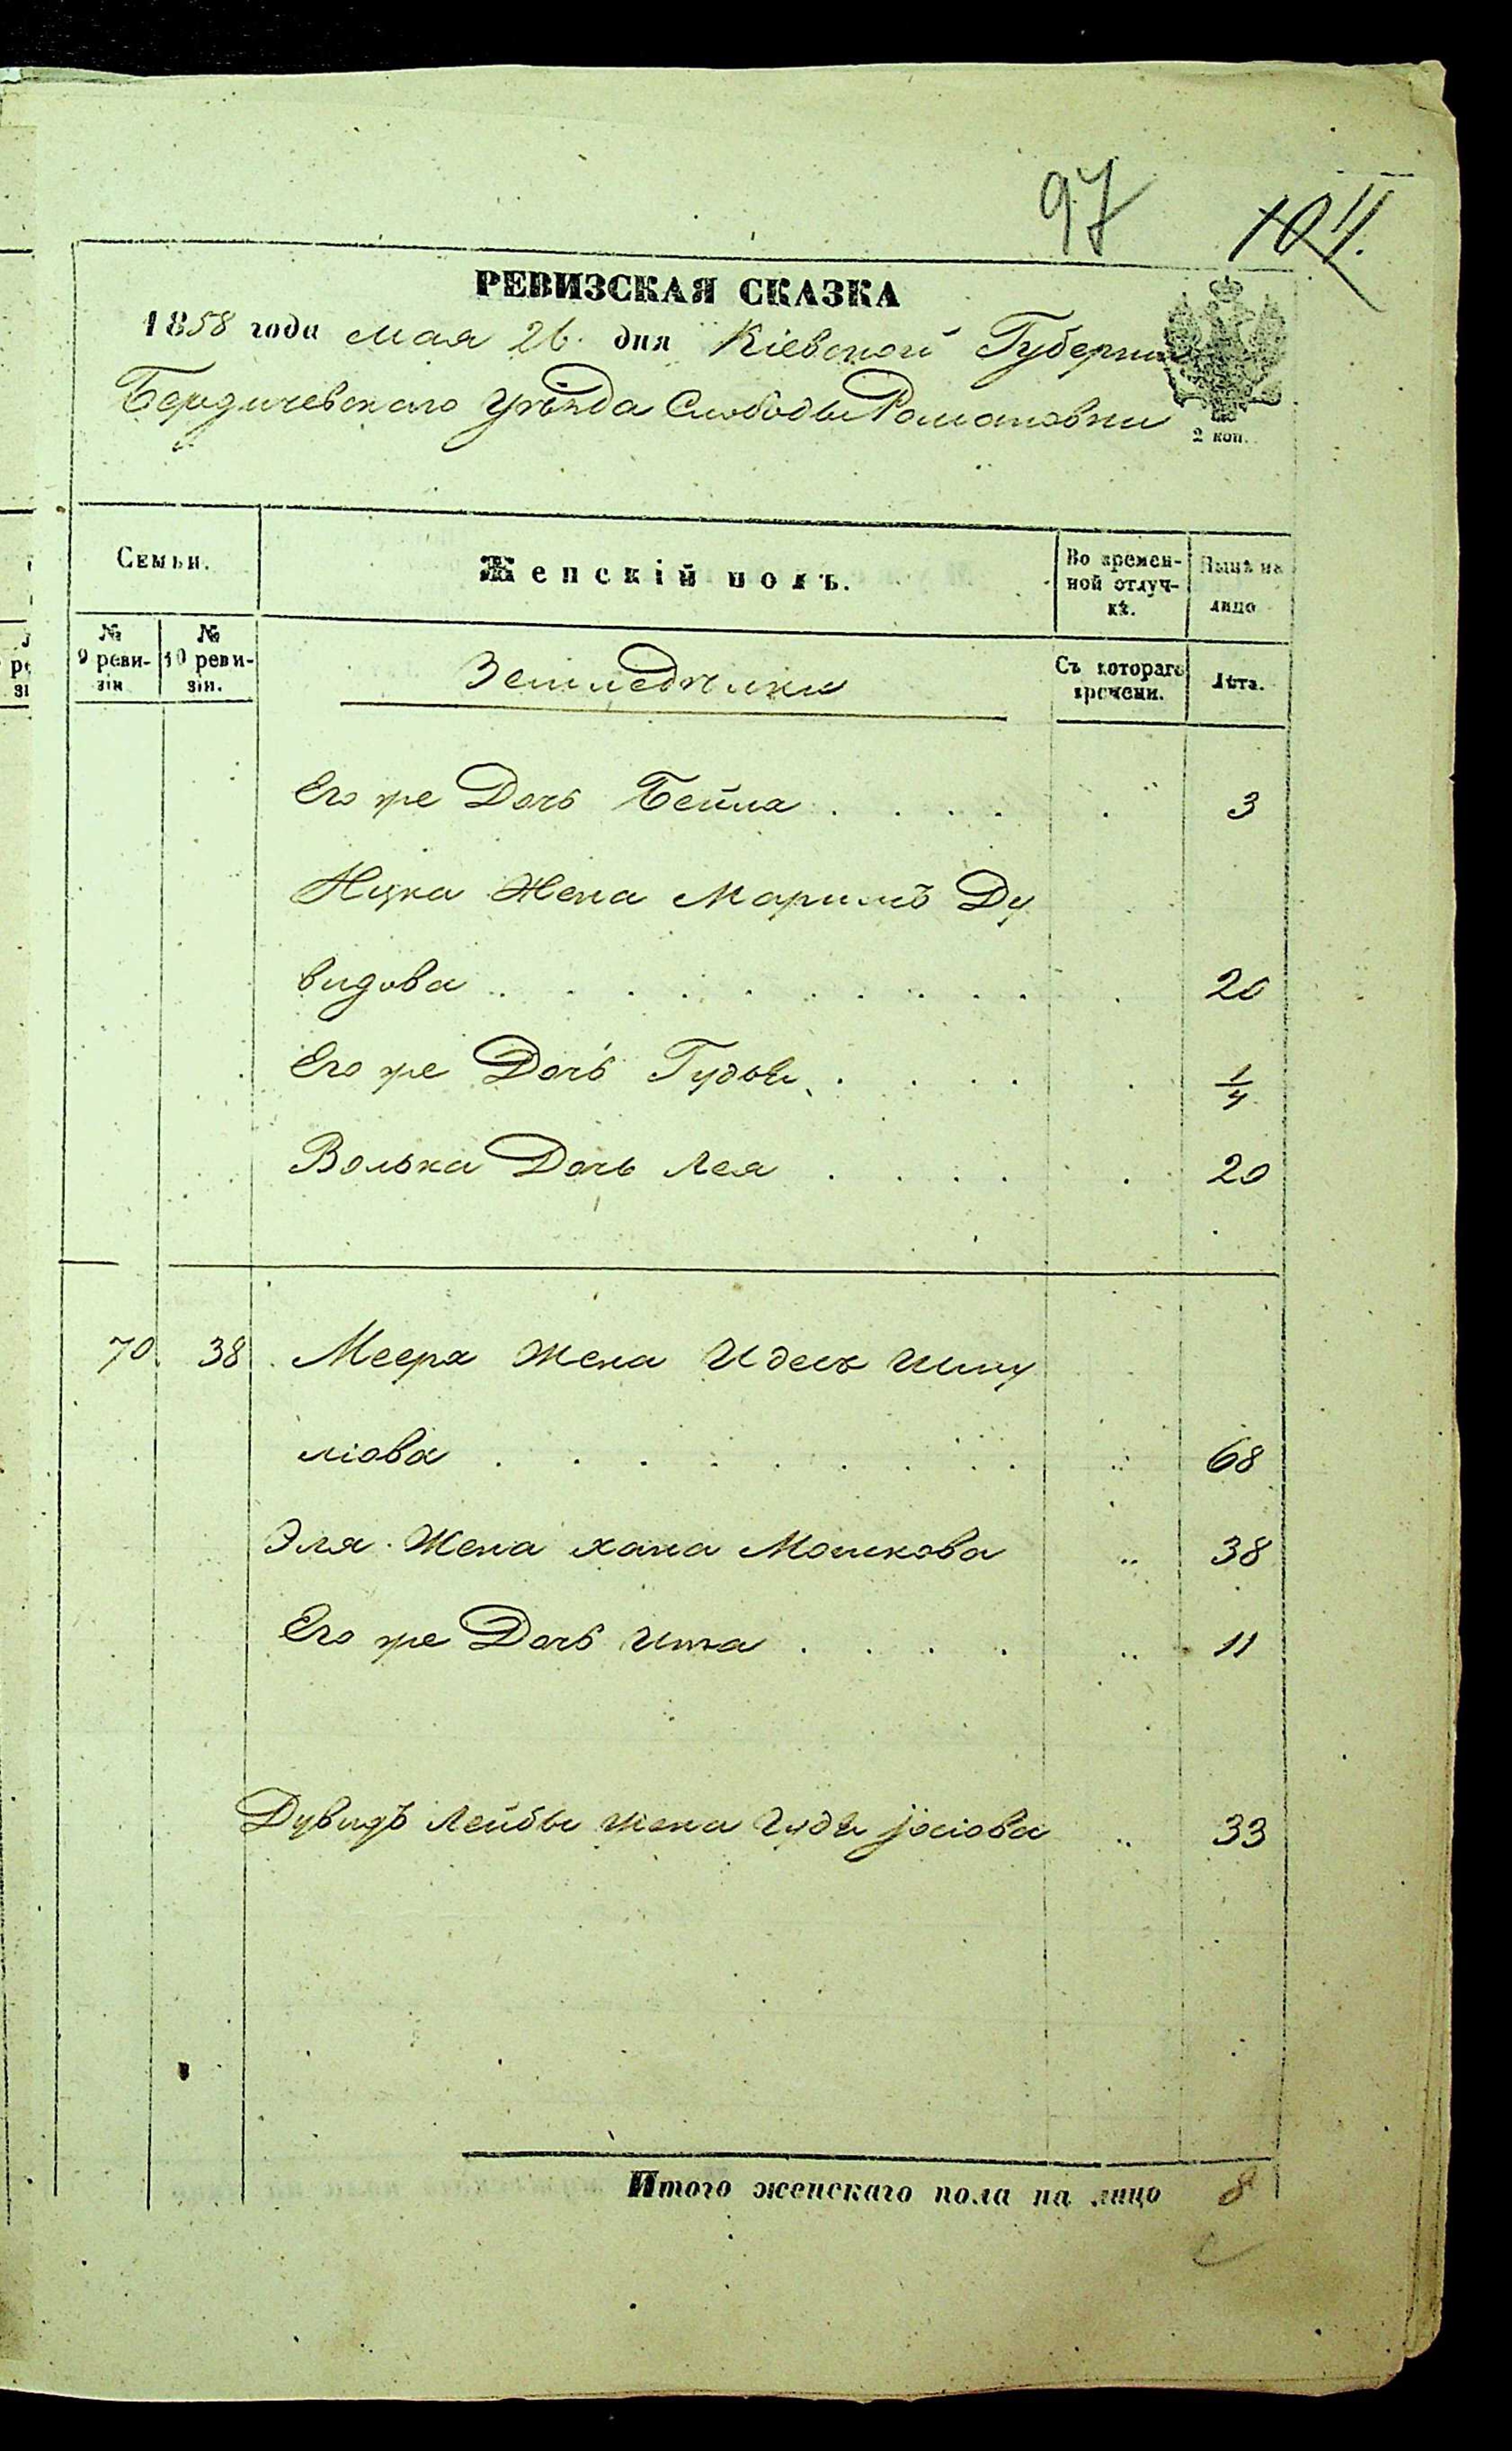 97 104.
РЕВИЗСКАЯ СКАЗКА
1858 года мая 26. дня Кіевской Губерніи
Бердичевскаго Уѣзда Слободы Романовки
2 коп.
Семьи.
Женскій полъ.
Во времен-
ной отлуч-
кѣ.
Нынѣ на
лицо
№
9 реви-
зіи
№
10 реви-
зіи.
Земледѣльцы
Съ котораго
времени.
Лѣта.
Его же Дочь Бейла . . . . . 3
Жена Маримъ Ду
видова . . . . . . . . . . 20
Его же Дочь Гудя . . . . . 1/4
Волька Дочь Лея . . . . . 20
70. 38. Меера Жена Идесъ Шму
лiова . . . . . . . . . 68
Эля Жена хана Мошкова „ 38
Его же Дочь Ита . . . . „ 11
Дувидъ Лейбы жена Гудя јосiова „ 33
Итого женскаго пола на лицо 8